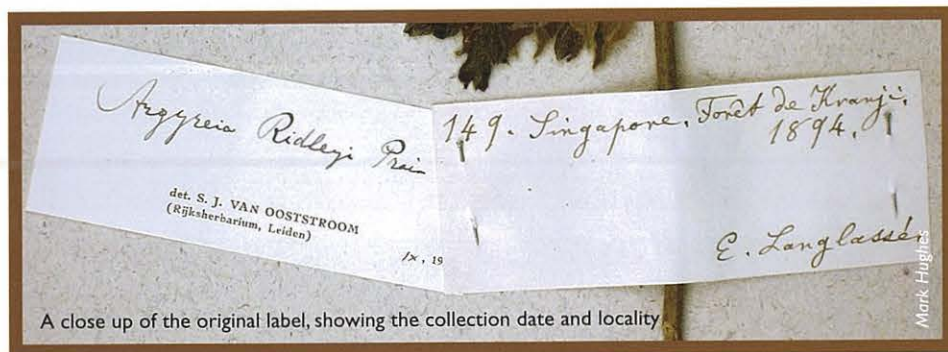 Argyreia Ridleyi Prain
det. S. J. VAN OOSTSTROOM
(Rijksherbarium, Leiden)
IX, 19
149. Singapore. Forêt de Kranji,
1894.
E. Langlassé
Mark Hughes
A close up of the original label, showing the collection date and locality